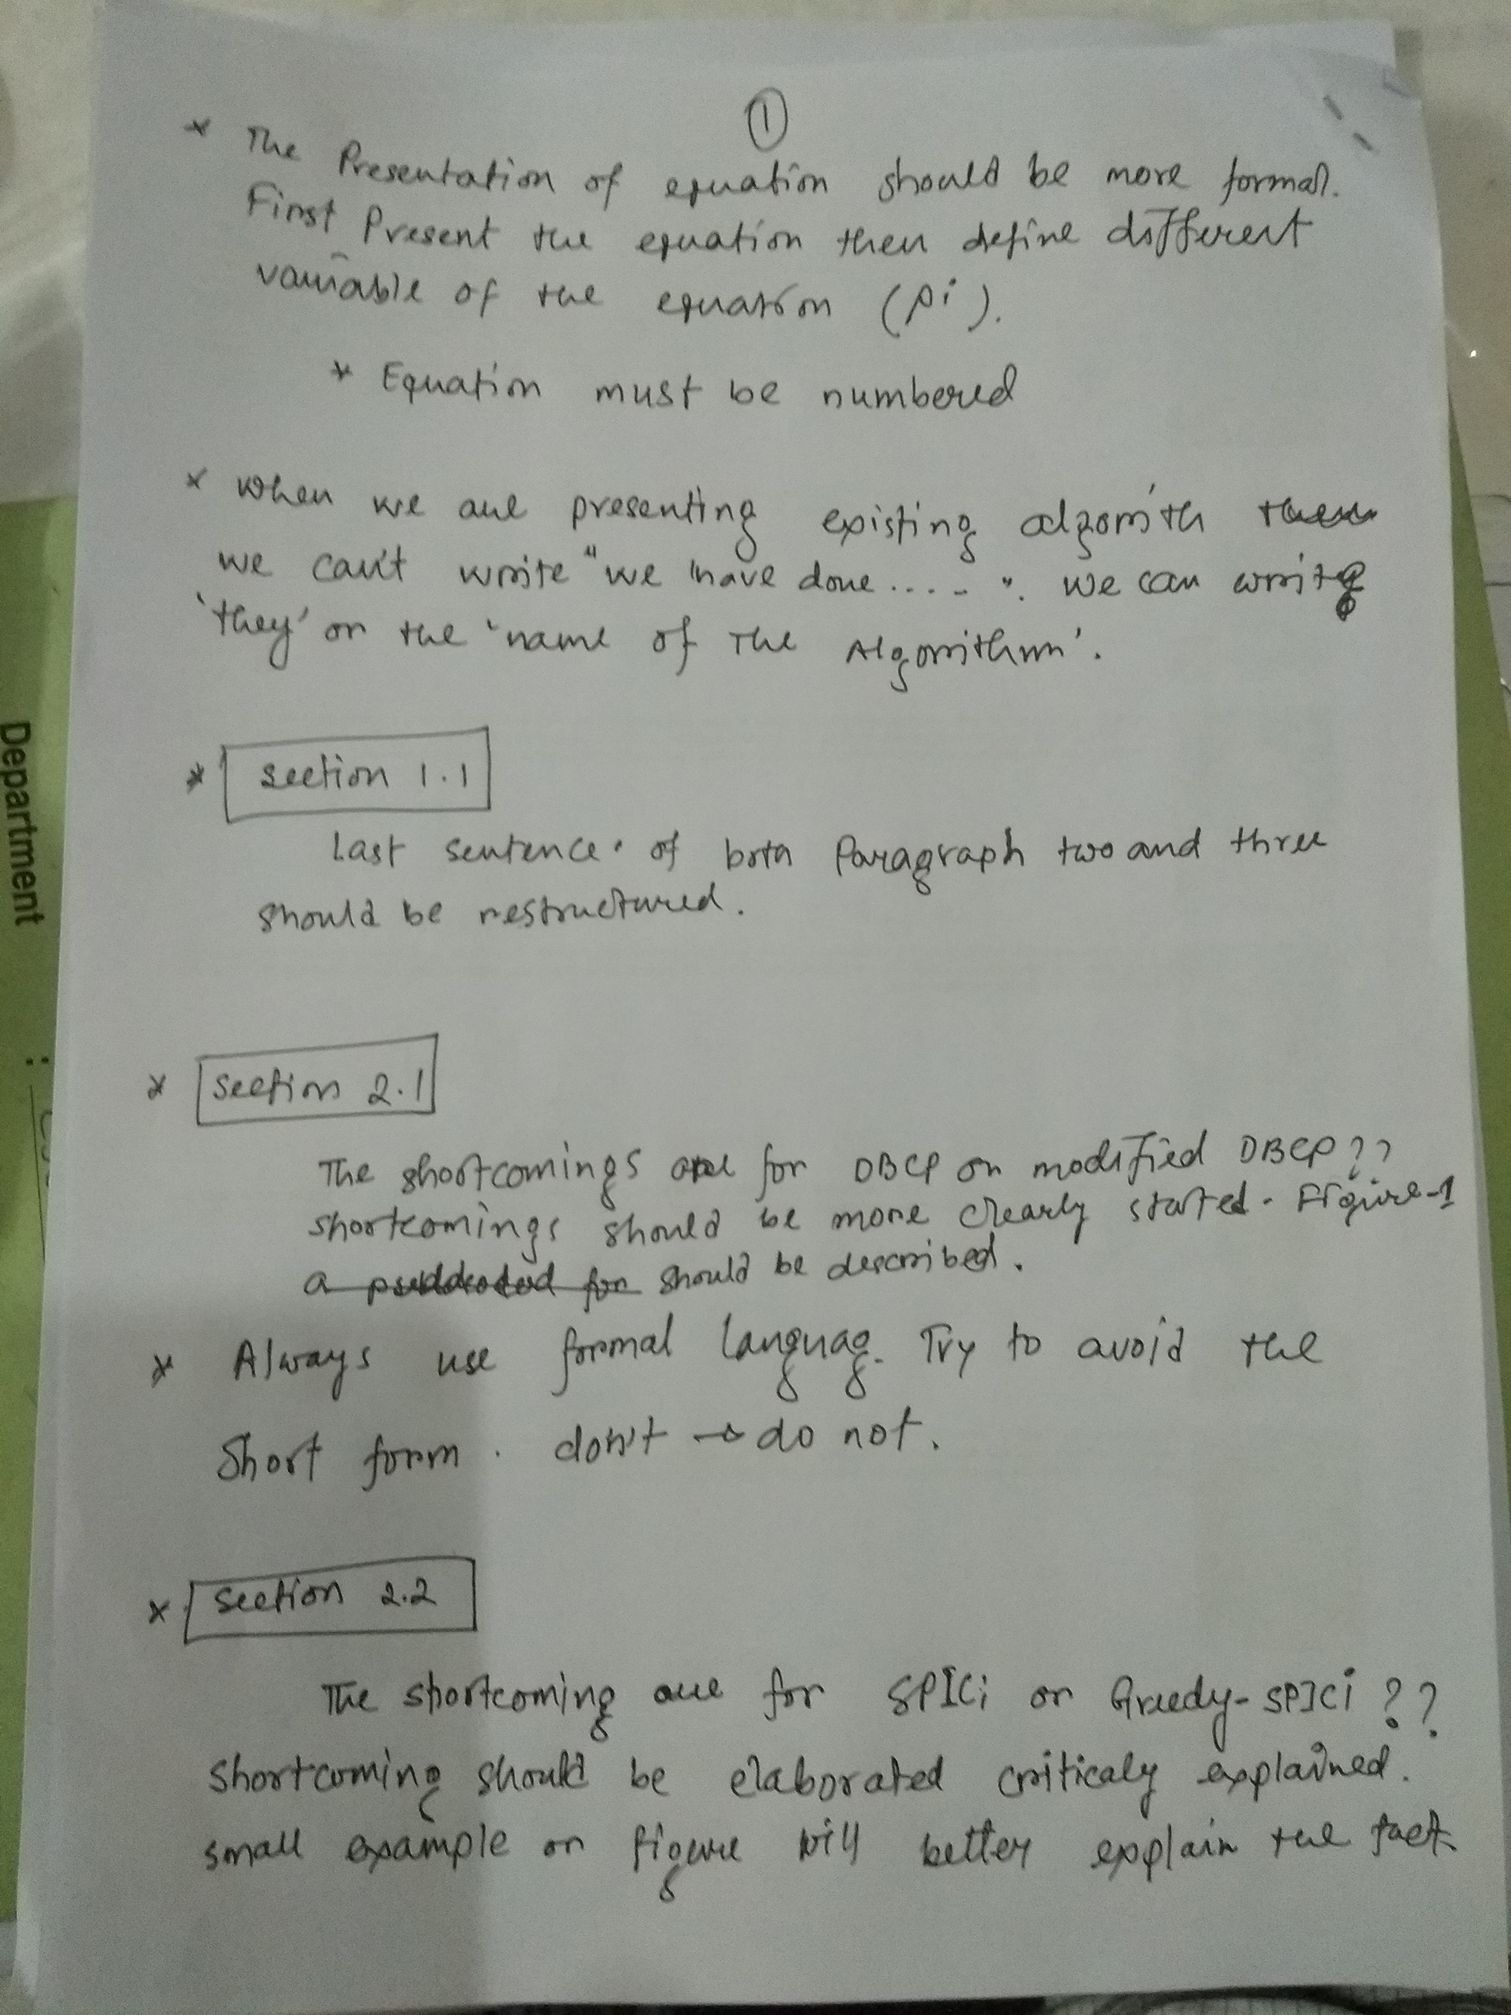 1
* The Presentation of equation should be more formal.
First Present the equation then define different
variable of the equation (pi).
* Equation must be numbered
* When we are presenting existing algorith then
we can't write "we have done.... ". We can write
'they' or the 'name of The Algorithm'.
* Section 1.1
Last sentence. of both Paragraph two and three
should be restructured.
* Section 2.1
The shortcomings are for DBCP or modified DBCP??
shortcomings should be more clearly started. Figure-1
a for should be described.
* Always use formal languag. Try to avoid the
Short form. don't → do not.
* Section 2.2
The shortcoming are for SPICi or Greedy-SPICi ??
shortcoming should be elaborated criticaly explained.
small example or figure will better explain the fact
Department :